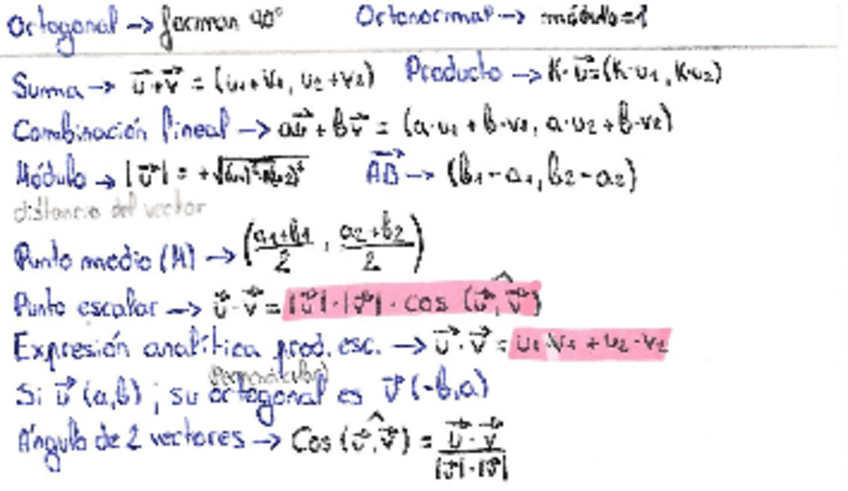 Octogonal → forman 90° Octonormal → módulo=1
Suma → u⃗+v⃗ = (u₁+v₁, u₂+v₂) Producto → K·u⃗=(K·u₁, K·u₂)
Combinación lineal → au⃗ + bv⃗ = (a·u₁ + b·v₁, a·u₂ + b·v₂)
Módulo → |u⃗| = +√(u₁)²+(u₂)² AB⃗ → (b₁-a₁, b₂-a₂)
distancia del vector
Punto medio (M) → (a₁+b₁/2, a₂+b₂/2)
Punto escalar → u⃗·v⃗ = |u⃗|·|v⃗|·cos (u⃗,v⃗)
Expresión analítica prod. esc. → u⃗·v⃗ = u₁·v₁ + u₂·v₂
(perpendicular)
Si u⃗ (a,b) ; su octogonal es v⃗ (-b,a)
Ángulo de 2 vectores → Cos (u⃗,v⃗) = u⃗·v⃗/|u⃗|·|v⃗|